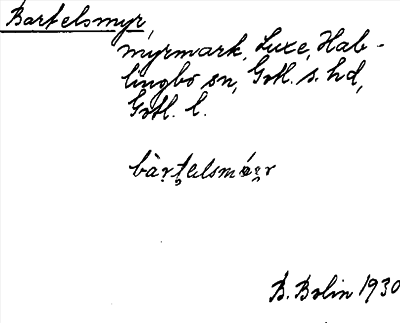 Bartelsmyr,
myrmark, Luxe, Hab-
lingbo sn, Gotl. s. hd,
Gotl. l.
B. Bolin 1930